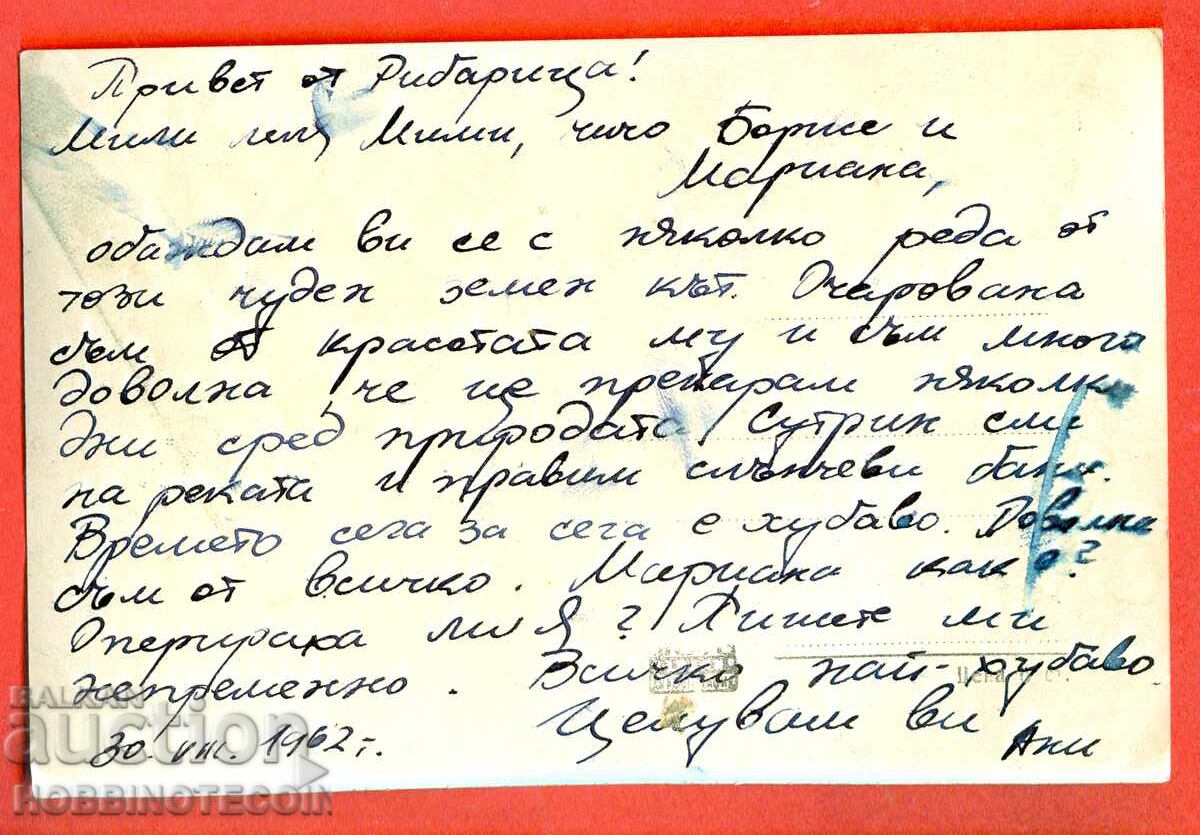 Привет от Рибарица!
Мили леля Мими, чичо Борис и
Мариана,
обаждам ви се с няколко реда от
този чуден земен кът. Очарована
съм от красотата му и съм много
доволна, че ще прекарам няколко
дни сред природата. Сутрин сме
на реката и правим слънчеви бани.
Времето сега за сега е хубаво. Доволна
съм от всичко. Мариана как е?
Оперираха ли я? Пишете ми
непременно. Всичко най-хубаво
Целувам ви
30. 1962 г.
Ани
Цена
BALKAN
auction
HOBBINOTECOIN